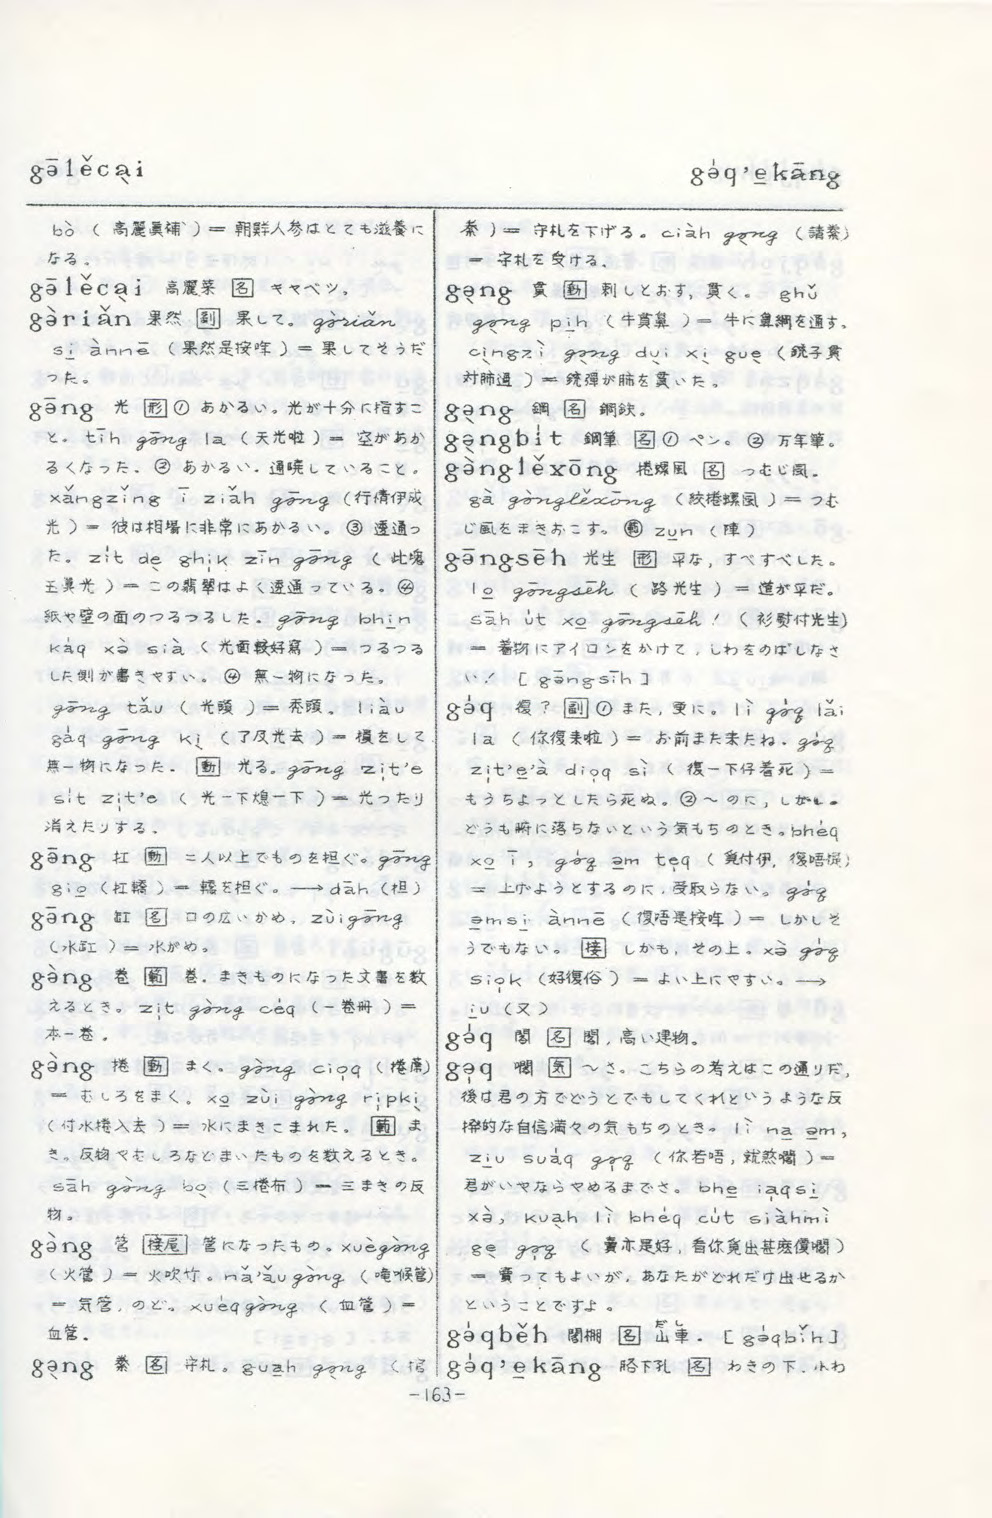 gə̄lěcại
gə́q'e̲kāng
bò ( 高麗眞補 ) = 朝鮮人参はとても滋養に
なる。
gə̄lěcại 高麗菜 [名] キャベツ。
gə̀riǎn 果然 [副] 果して。gə̀riǎn
si̲ ànnē (果然是按哖) = 果してそうだ
つた。
gə̄ng 光 [形] ① あかるい。光が十分に指すこ
と。tīh gə̄ng la (天光啦) = 空があか
るくなった。② あかるい。通暁していること。
xǎngzǐng ī ziǎh gə̄ng (行情伊成
光) = 彼は相場に非常にあかるい。③ 透通っ
た。zı̍t de̲ ghı̍k zīn gə̄ng ( 此塊
玉眞光 ) = この翡翠はよく透通っている。④
紙や壁の面のつるつるした。gə̄ng bhīn
káq xə̀ sià ( 光面較好寫 ) = つるつる
した側が書きやすい。④ 無一物になった。
gə̄ng tǎu ( 光頭 ) = 禿頭。liàu
gáq gə̄ng kị (了及光去) = 損をして
無一物になった。[動] 光る。gə̄ng zı̍t'e
sit zı̍t'e ( 光一下熄一下 ) = 光ったり
消えたりする。
gə̄ng 扛 [動] 二人以上でものを担ぐ。gə̄ng
gio̲ (扛轎) = 轎を担ぐ。⟶ dāh (担)
gə̄ng 缸 [名] 口の広いかめ。zùigə̄ng
(水缸) = 水がめ。
gə̀ng 巻 [範] 巻。まきものになった文書を数
えるとき。zı̍t gə̀ng céq (一巻冊) =
本一巻。
gə̀ng 捲 [動] まく。gə̀ng cio̍q (捲蓆)
= むしろをまく。xo̲ zùi gə̀ng rı̍pkị
(付水捲入去) = 水にまきこまれた。[範] ま
き。反物やむしろなどまいたものを数えるとき。
sāh gə̀ng bọ (三捲布) = 三まきの反
物。
gə̀ng 管 [接尾] 管になったもの。xuègə̀ng
(火管) = 火吹竹。nǎ'ǎugə̀ng (嚨喉管)
= 気管,のど。xuéqgə̀ng (血管) =
血管。
gə̣ng 券 [名] 守札。guạh gə̣ng (掛
券) = 守札を下げる。ciàh gə̣ng (請券)
= 守札を受ける。
gə̣ng 貫 [動] 刺しとおす,貫く。ghǔ
gə̣ng pi̲h (牛貫鼻) = 牛に鼻綱を通す。
cịngzì gə̣ng dụi xị gụe (銃子貫
対肺過) = 銃弾が肺を貫いた。
gə̣ng 鋼 [名] 鋼鉄。
gə̣ngbit 鋼筆 [名] ① ペン。② 万年筆。
gə̀nglěxōng 捲螺風 [名] つむじ風。
gà gə̀nglěxōng (絞捲螺風) = つむ
じ風をまきおこす。[範] zun̲ (陣)
gə̄ngsēh 光生 [形] 平な,すべすべした。
lo̲ gə̄ngsēh ( 路光生 ) = 道が平だ。
sāh út xo̲ gə̄ngsēh! (衫熨付光生)
= 着物にアイロンをかけて,しわをのばしなさ
い! [ gə̄ngsīh ]
gə́q 復? [副] ① また,更に。lì gə́q lǎi
la (你復来啦) = お前また来たね。gə́q
zı̍t'e̲'à dio̍q sì ( 復一下仔着死 ) =
もうちょっとしたら死ぬ。② ～のに,しかし。
どうも腑に落ちないという気もちのとき。bhéq
xo̲ ī, gə́q ə̲m te̍q (覓付伊,復唔提)
= 上げようとするのに,受取らない。gə́q
ə̲msi̲ ànnē (復唔是按哖) = しかしそ
うでもない。[接] しかも,その上。xə̀ gə́q
sio̍k (好復俗) = よい上にやすい。⟶
iu̲ (又)
gə́q 閣 [名] 閣,高い建物。
gə̍q 嚪 [気] ～さ。こちらの考えはこの通りだ,
後は君の方でどうとでもしてくれというような反
撥的な自信満々の気もちのとき。lì na̲ ə̲m,
zi̲u suáq gə̍q (你若唔,就煞嚪) =
君がいやならやめるまでさ。bhe̲ ia̍qsi̲
xə̀, kụah lì bhéq cút siàhmì
gẹ gə̍q ( 賣亦是好,看你覓出甚麽價嚪)
= 賣ってもよいが,あなたがどれだけ出せるか
ということですよ。
gə́qběh 閣棚 [名] 山車。[ gə́qbǐh ]
gə́q'e̲kāng 胳下孔 [名] わきの下。小わ
-163-